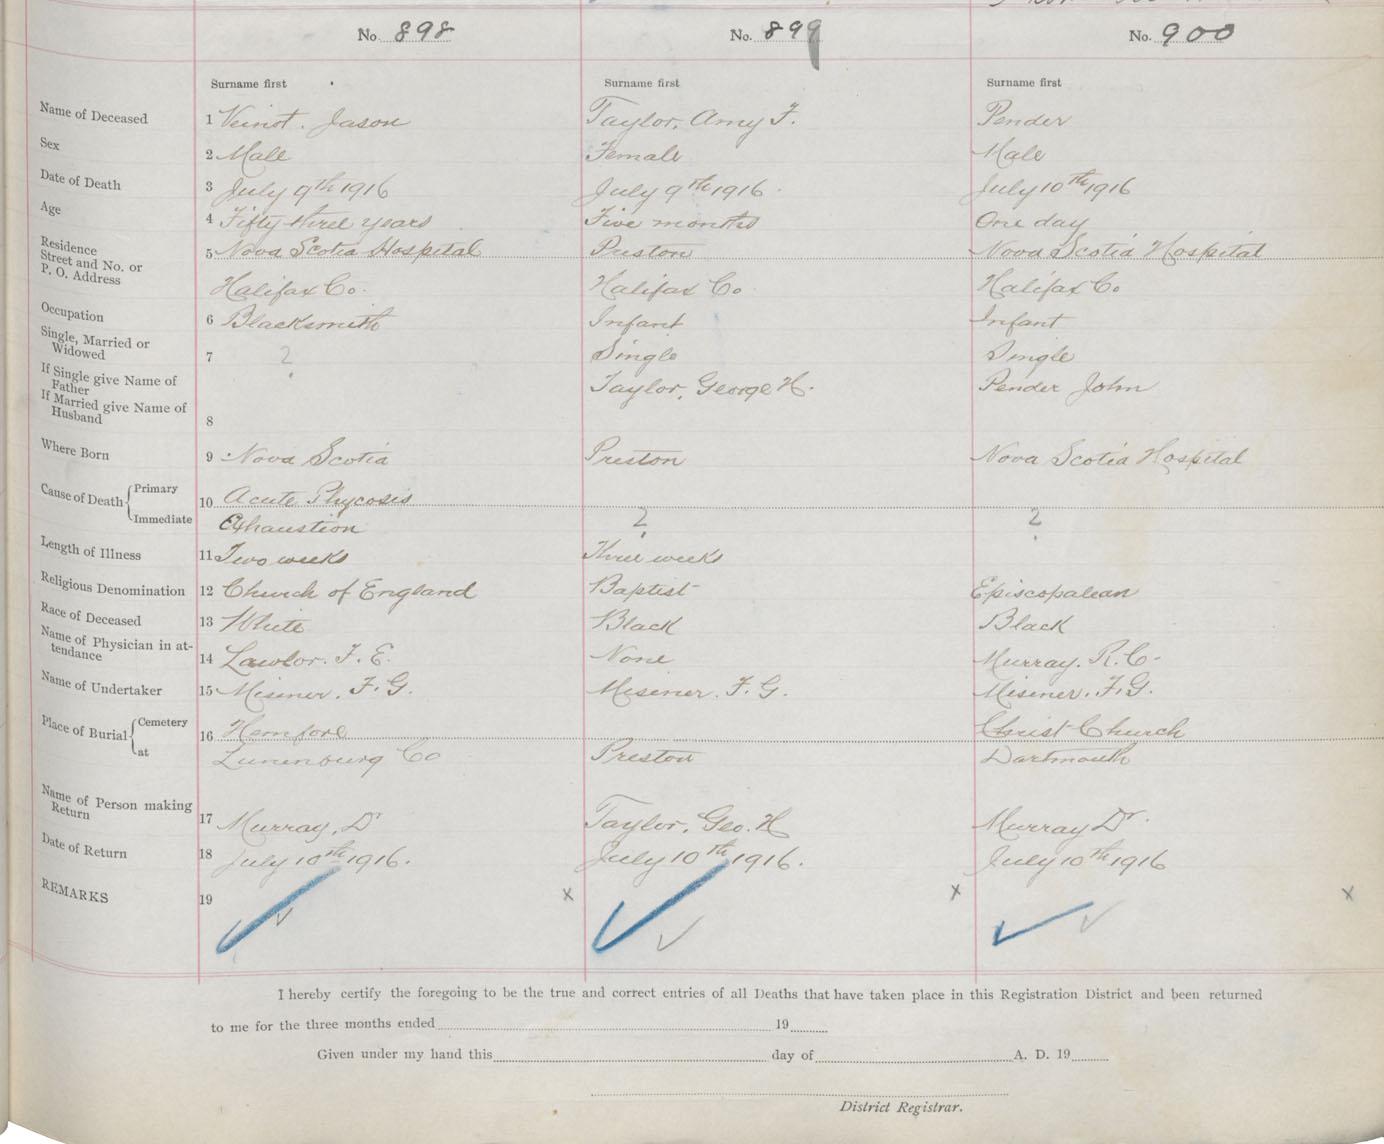 No. 898 No. 899 No. 900
Surname first Surname first Surname first
Name of Deceased 1 Veinot. Jason Taylor, Amy F. Pender
Sex 2 Male Female Male
Date of Death 3 July 9th 1916 July 9th 1916. July 10th 1916
Age 4 Fifty three years Five months One day
Residence
Street and No. or 5 Nova Scotia Hospital Preston Nova Scotia Hospital
P. O. Address Halifax Co. Halifax Co. Halifax Co
Occupation 6 Blacksmith Infant Infant
Single, Married or
Widowed 7 ? Single Single
If Single give Name of
Father Taylor, George H. Pender John
If Married give Name of
Husband 8
Where Born 9 Nova Scotia Preston Nova Scotia Hospital
Cause of Death Primary 10 Acute Phycosis
Immediate Exhaustion ? ?
Length of Illness 11 Two weeks Three weeks
Religious Denomination 12 Church of England Baptist Episcopalean
Race of Deceased 13 White Black Black
Name of Physician in at-
tendance 14 Lawlor. F. E. None Murray. R. C.
Name of Undertaker 15 Misener. F. G. Misener. F. G. Misener. F. G.
Place of Burial Cemetery 16 Hemford Christ Church
at Lunenburg Co Preston Dartmouth
Name of Person making
Return 17 Murray, Dr Taylor, Geo. H Murray Dr.
Date of Return 18 July 10th 1916. July 10th 1916. July 10th 1916
REMARKS 19 x x x
I hereby certify the foregoing to be the true and correct entries of all Deaths that have taken place in this Registration District and been returned
to me for the three months ended 19
Given under my hand this day of A. D. 19
District Registrar.